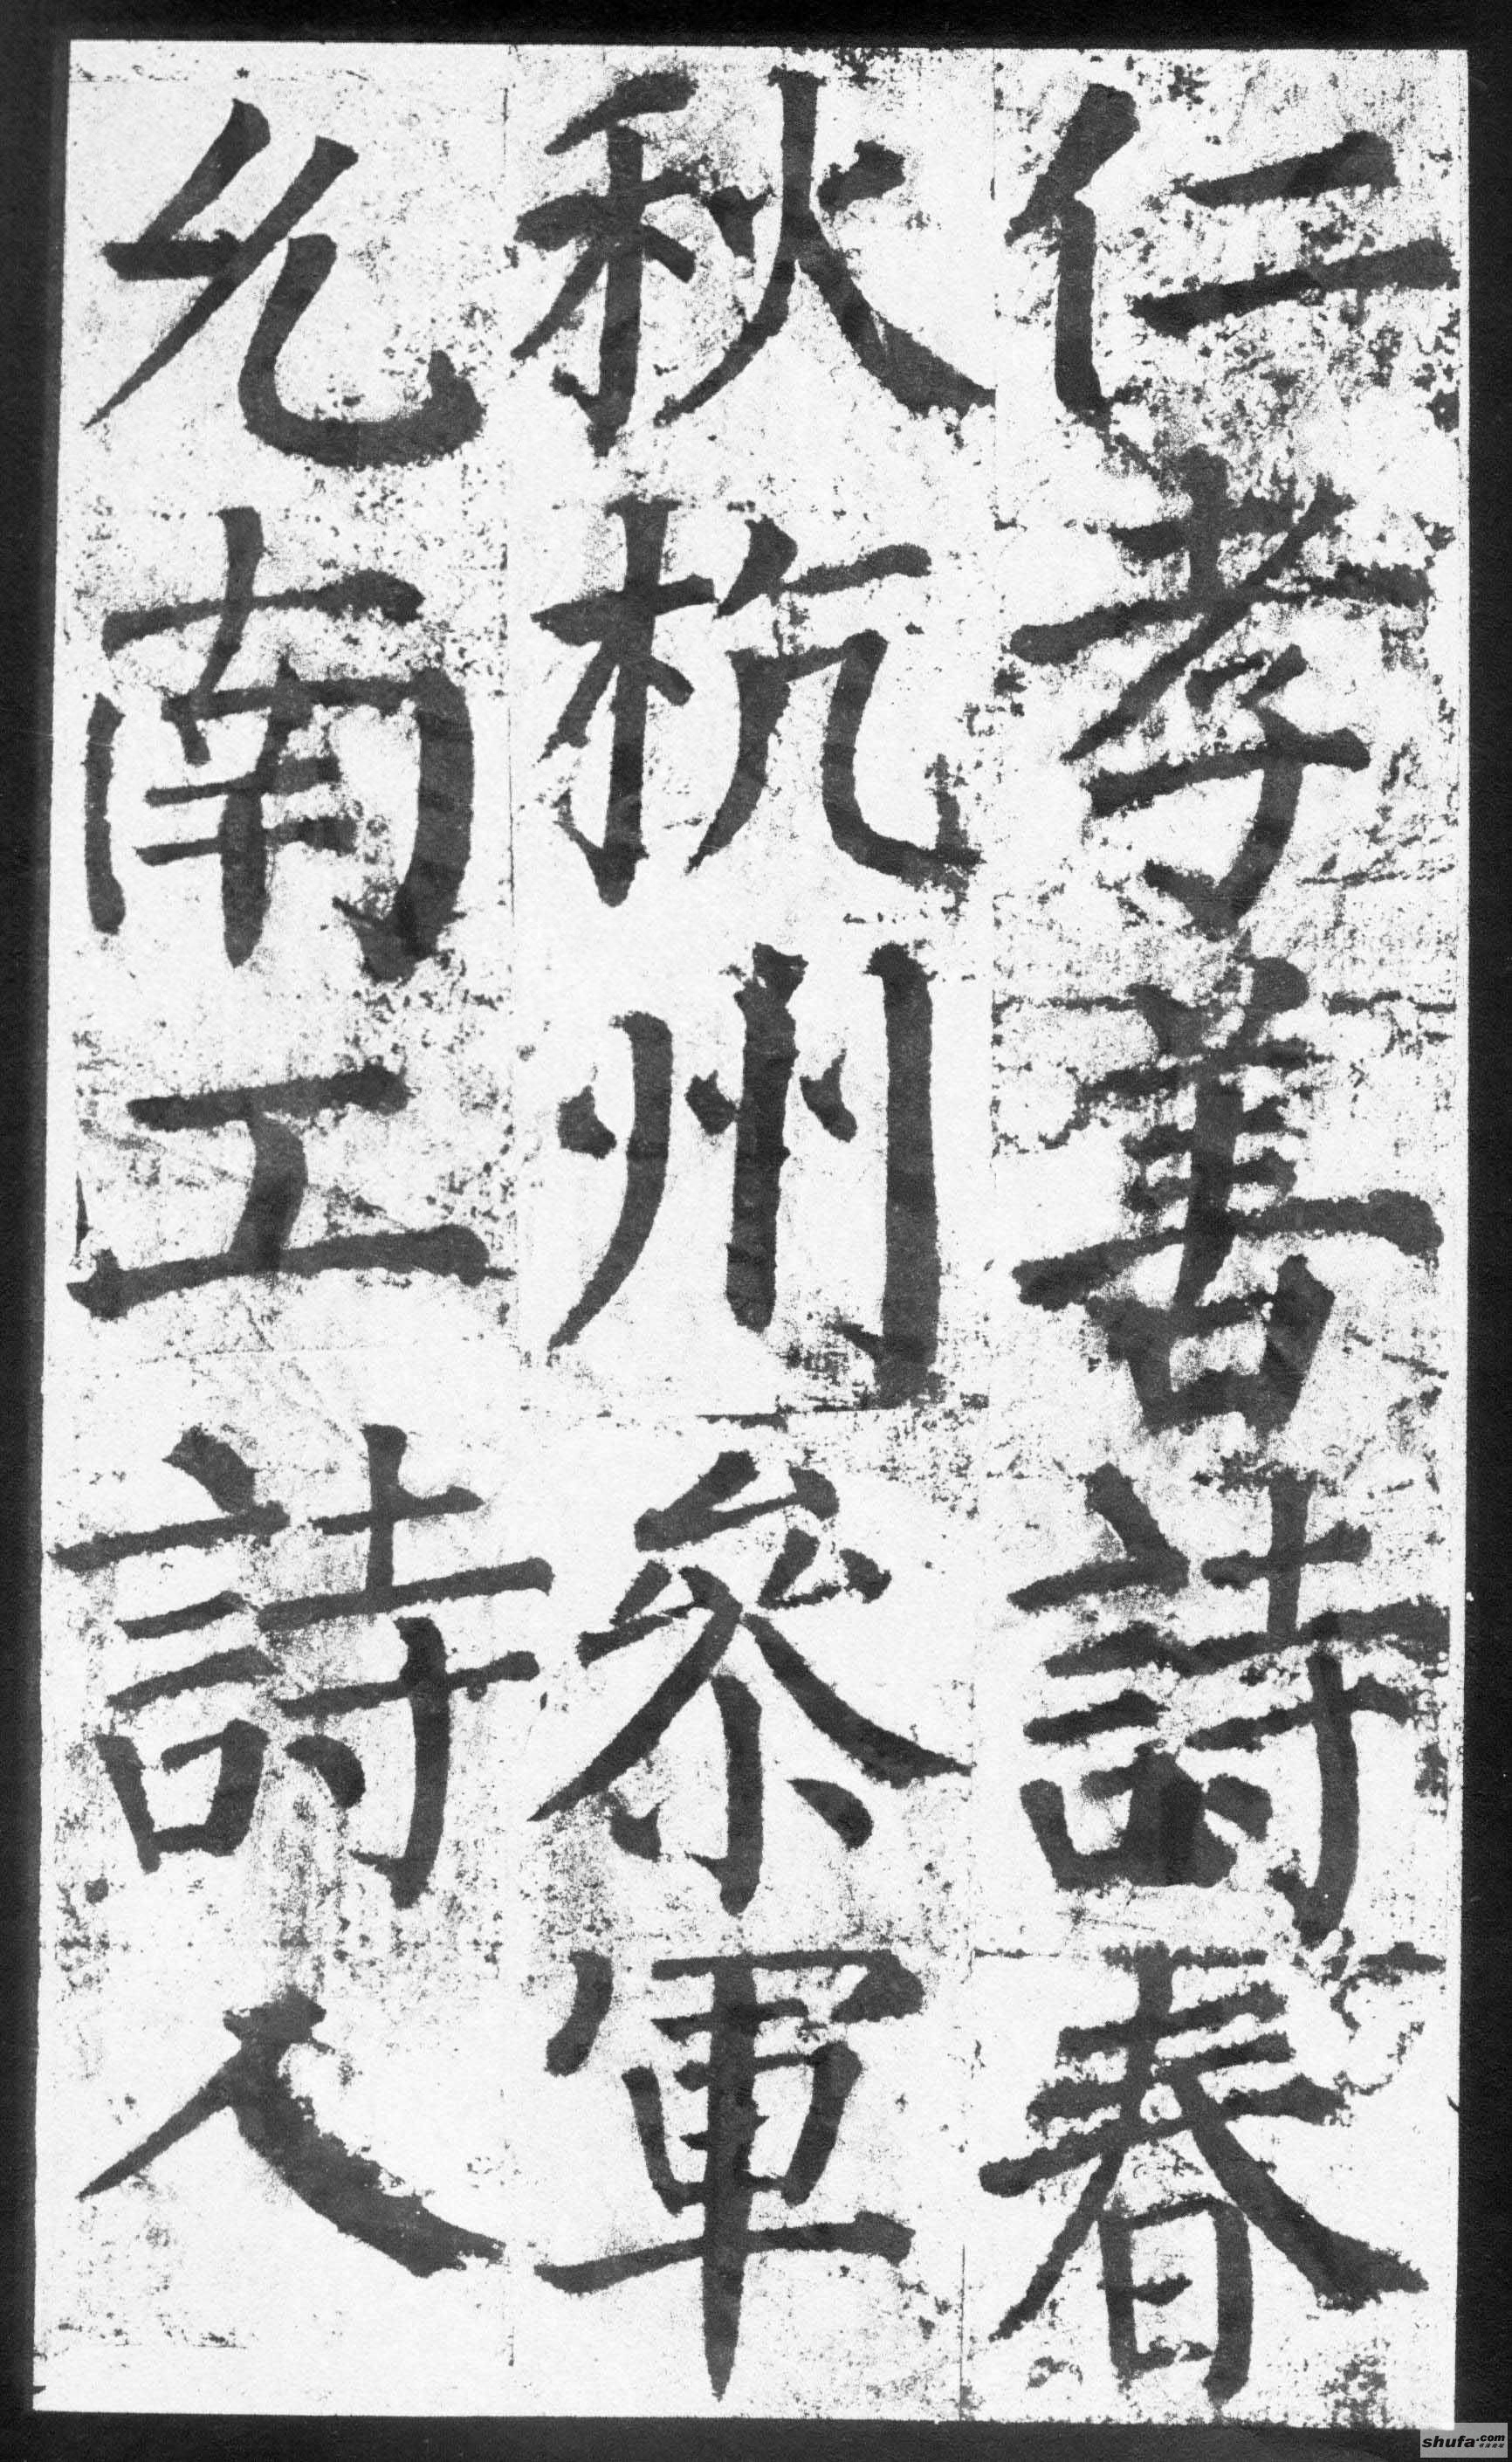 仁孝善詩春
秋杭州參軍
允南工詩人
shufa.com